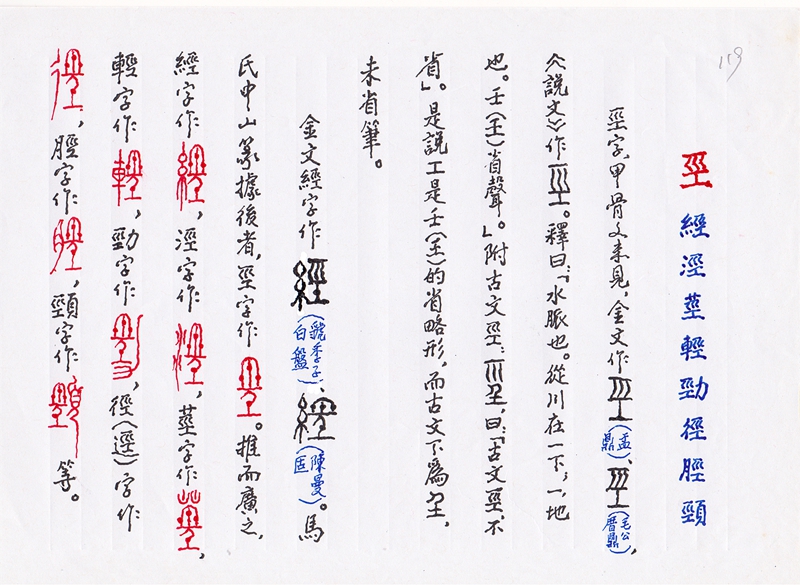 119
巠 經涇莖輕勁徑脛頸
巠字、甲骨文未見，金文作巠（盂鼎）、巠（毛公𢉩鼎），
《說文》作巠。釋曰：「水脈也。從川在一下；一，地
也。壬（𡈼）省聲。」附古文巠：𡿭，曰：「古文巠，不
省」。是說工是壬（𡈼）的省略形，而古文下為𡈼，
未省筆。
金文經字作經（虢季子白盤）、經（陳曼匿）。馬
氏中山篆據後者，巠字作巠。推而廣之，
經字作經，涇字作涇，莖字作莖，
輕字作輕，勁字作勁，徑（逕）字作
徑，脛字作脛，頸字作頸等。